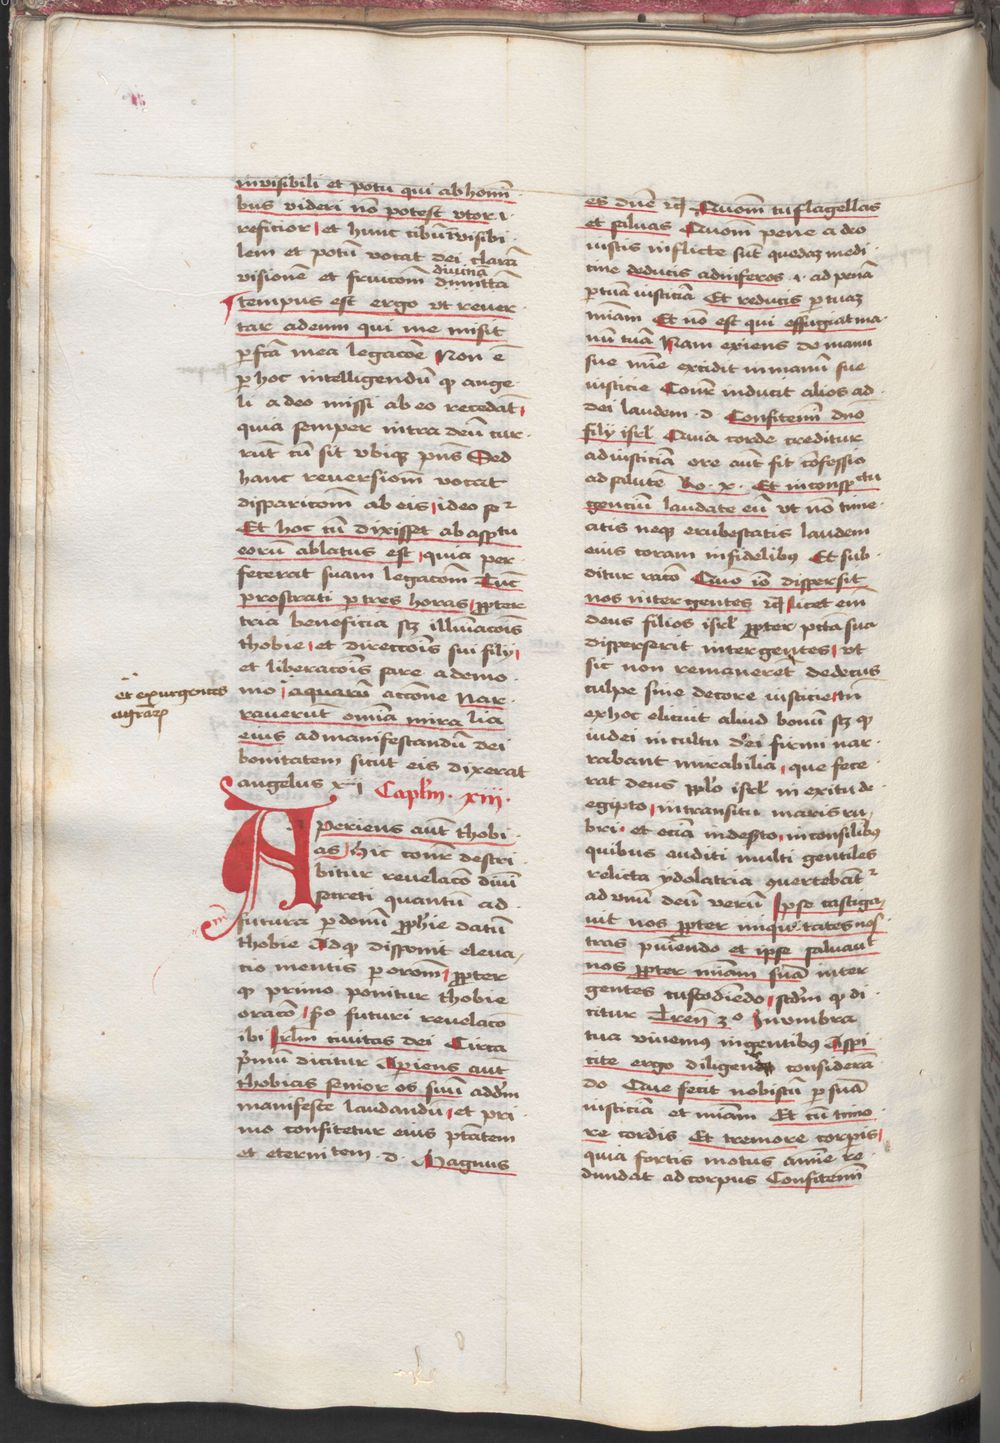 invisibili et potu qui ab homi͞
bus videri no͞ potest vtor ⁊
reficior et hunc cibu͞ i͞visibi
lem et potu͞ vocat dei clara͞
visione͞ et fruico͞m divina͞
tempus est ergo vt reuer
tar ad eum qui me misit
p̱fc͞a mea legaco͞e Non e͞
p̱ hoc intelligendu͞ qͥ ange
li a deo missi ab eo recedat͞
quia semper intra deu͞ cur
ru͞t cu͞ sit vbiqꝫ pn͞s Sed
hanc reuersiom͞ vocat
disparicom͞ ab eis ideo
Et hoc cu͞ dixisset ab asp̱tu
eoru͞ ablatus est quia per
fecerat suam legacom͞ Tu͞c
prostrati p̱ tres horas pp̱ter
tria beneficia sꝫ illui͞acois͞
thobie et direccois͞ sui filij
et liberacois͞ sare a demo
nio a quaru͞ acco͞ne Nar
rauerut͞ omi͞a mira lia
eius ad manifestandu͞ dei
bonitatem sicut eis dixerat
angelus xij Capl͞m xiij
Aperiens aut͞ thobi
as hic com͞r descri
bitur reuelaco͞ diui͞
secreti quantu͞ ad
futura p̱ donu͞ pp̱hie datu͞
thobie Ad qͥ disponit eleua
cio mentis p̱ orom͞ pp̱ter
qͥ primo ponitur thobie
oraco͞ s͞o futuri reuelaco͞
ibi Jrl͞m ciuitas dei Circa
p͛mu͞ dicitur Ap̱iens aut͞
thobias senior os suu͞ ad dn͞m
manifeste laudandu͞ et pri
mo confitetur eius pt͞atem
et eterni tem d Magnus
et expurgentes
es dn͞e Quom͞ tu flagellas
et saluas Quom͞ pene a deo
iustis inflicte su͞t quedaꝫ medi
cine deducis ad inferos ad pena͞
p̱ tua͞ iusticia͞ Et reducis p̱ tuaꝫ
mi͞am Et no͞ est qui effugiat ma
nu͞ tua͞ Nam exiens de manu
sue mi͞e excidit in manu͞ sue
iusticie Com͞r inducit alios ad
dei laudem d Confitemi͞ dn͞o
filij isrl͞ Quia corde creditur
ad iusticia͞ ore aut͞ fit co͞fessio
ad salute͞ Ro x Et in consp̱ctu
genciu͞ laudate eu͞ vt no͞ time
atis neqꝫ erubestatis laudem
eius coram infidelibus Et sub
ditur raco͞ Qm͞ io͞ dispersit
nos inter gentes licet em͞
deus filios isrl͞ pp̱ter pc͞ta sua
disperserit inter gentes vt
sic non remaneret͞ dedecus
culpe sine decore iusticie tn͞
ex hoc elicuit aliud bonu͞ sꝫ qͥ
iudei in cultu dei firmi nar
rabant mirabilia que fece
rat deus pp̱lo isrl͞ in exitu de
egipto in transitu maris ru
bri et ecia͞ in desˀto in consilibus
quibus auditi multi gentiles
relicta ydolatria ɔuertebat͞r
ad vnu͞ deu͞ veru͞ Ipse castiga
uit nos pp̱ter iniqui tates nos
tras puniendo et ipse saluauit
nos pp̱ter mi͞am sua͞ inter
gentes custodiendo sc͞dm qͥ di
citur Tren͞ 3º In vmbra
tua viuemus in gentibus Aspi
cite ergo diligenter considera͞
do Que fecit nobiscu͞ p̱ sua͞
iusticia͞ et mi͞am Et cu͞ timo
re cordis Et tremore corp̱is
quia fortis motus anim͞e re
dundat ad corpus Confitemi͞